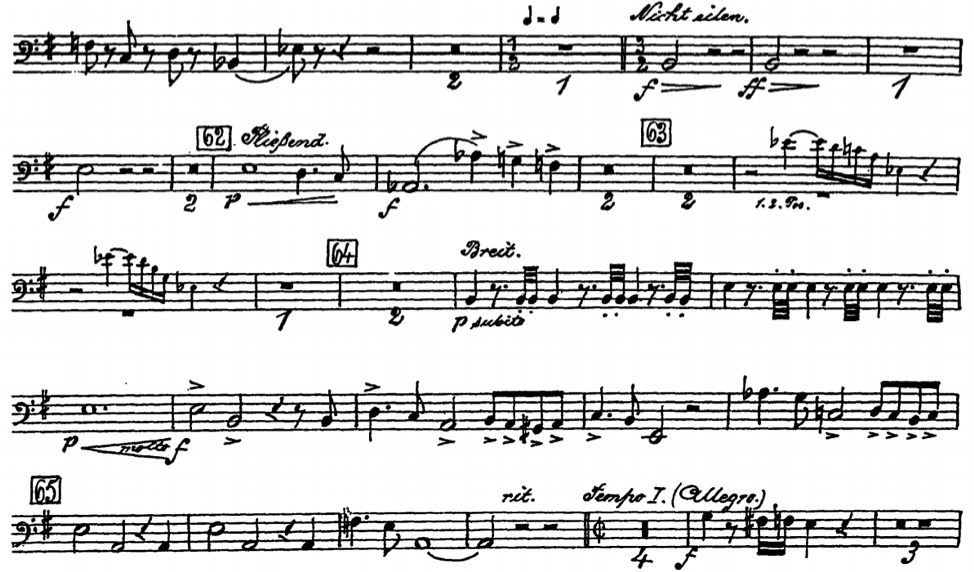 ♩=♩ Nicht eilen.
1 2 3 2
2 1 f ff 1
62 Fließend. 63
f 2 p f 2 2 1. 2. Pos.
64 Breit.
1 2 p subito
p molto f
65 rit. Tempo I. (Allegro.)
4 f 3